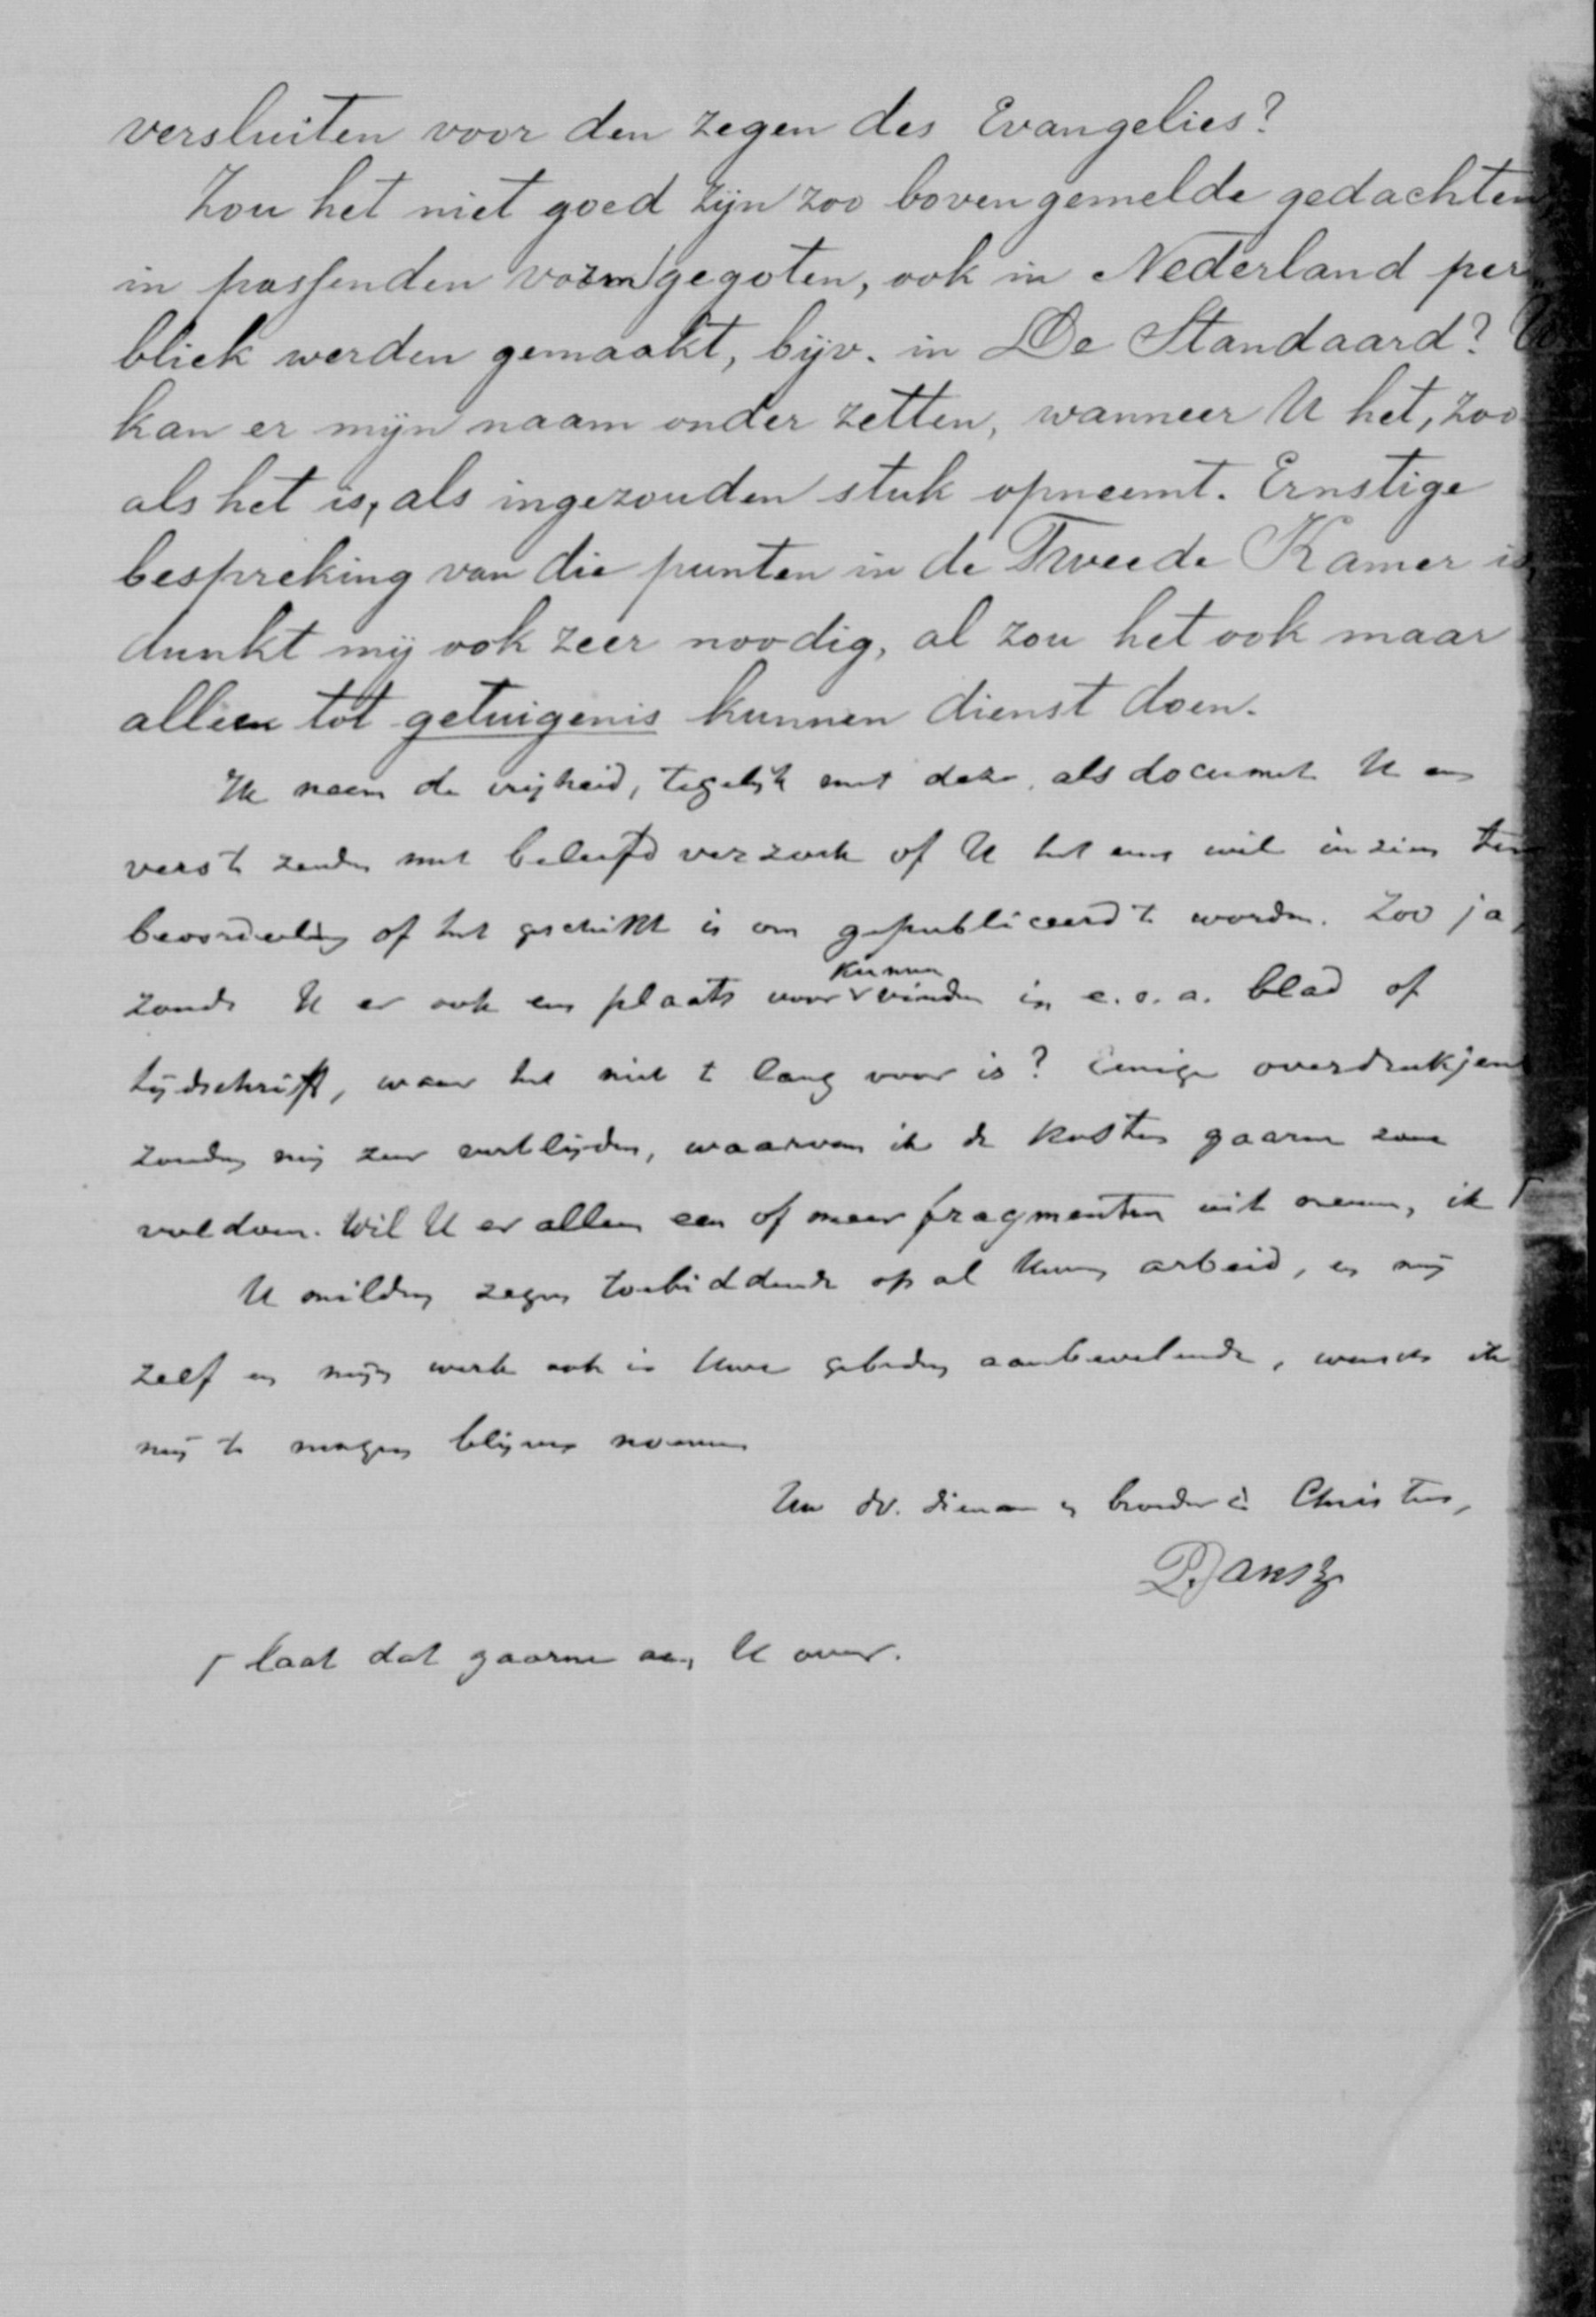 versluiten voor den zegen des Evangelies?
Zou het niet goed zijn zoo bovengemelde gedachten
in passenden vorm gegoten, ook in Nederland per
bliek werden gemaakt, bijv. in De Standaard? U
kan er mijn naam onder zetten, wanneer U het, zoo
als het is, als ingezonden stuk opneemt. Ernstige
bespreking van die punten in de Tweede Kamer is,
dunkt mij ook zeer noodig, al zou het ook maar
alleen tot getuigenis kunnen dienst doen.
Ik neem de vrijheid, tegelijk met deze, als document U een
te zenden met beleefd verzoek of U het eens wil inzien ter
beoordeeling of het geschikt is om gepubliceerd te worden. Zoo ja,
zoude U er ook een plaats voor kunnen vinden in e.o.a. blad of
tijdschrift, waar het niet te lang voor is? Eenige overdrukjens
zouden mij zeer verblijden, waarvan ik de kosten gaarne zou
voldoen. Wil U er alleen een of meer fragmenten uit nemen, ik
U milden zegen toebiddende op al Uwen arbeid, en mij
zelf en mijn werk ook in Uwe gebeden aanbevelende, wensch ik
mij te mogen blijven noemen
Uw dv. dienaar en broeder in Christus,
P. Jansz
laat dat gaarne aan U over.